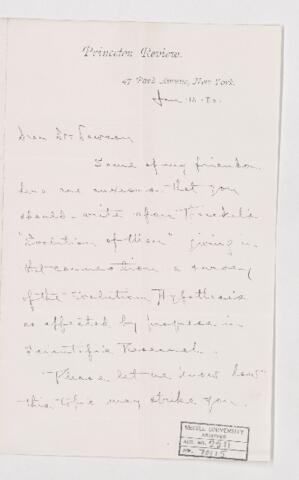 Princeton Review.
47 Park Avenue, New York.
Jan. 16.
Dear Dr Dawson
Some of my friends
here are anxious that you
should write upon Haeckel's
"Evolution of Man" giving in
that connection a survey
of the Evolution Hypothesis
as affected by progress in
Scientific Research.
Please let me know how
this topic may strike you.
McGILL UNIVERSITY
ARCHIVES
ACC. NO.
REF.